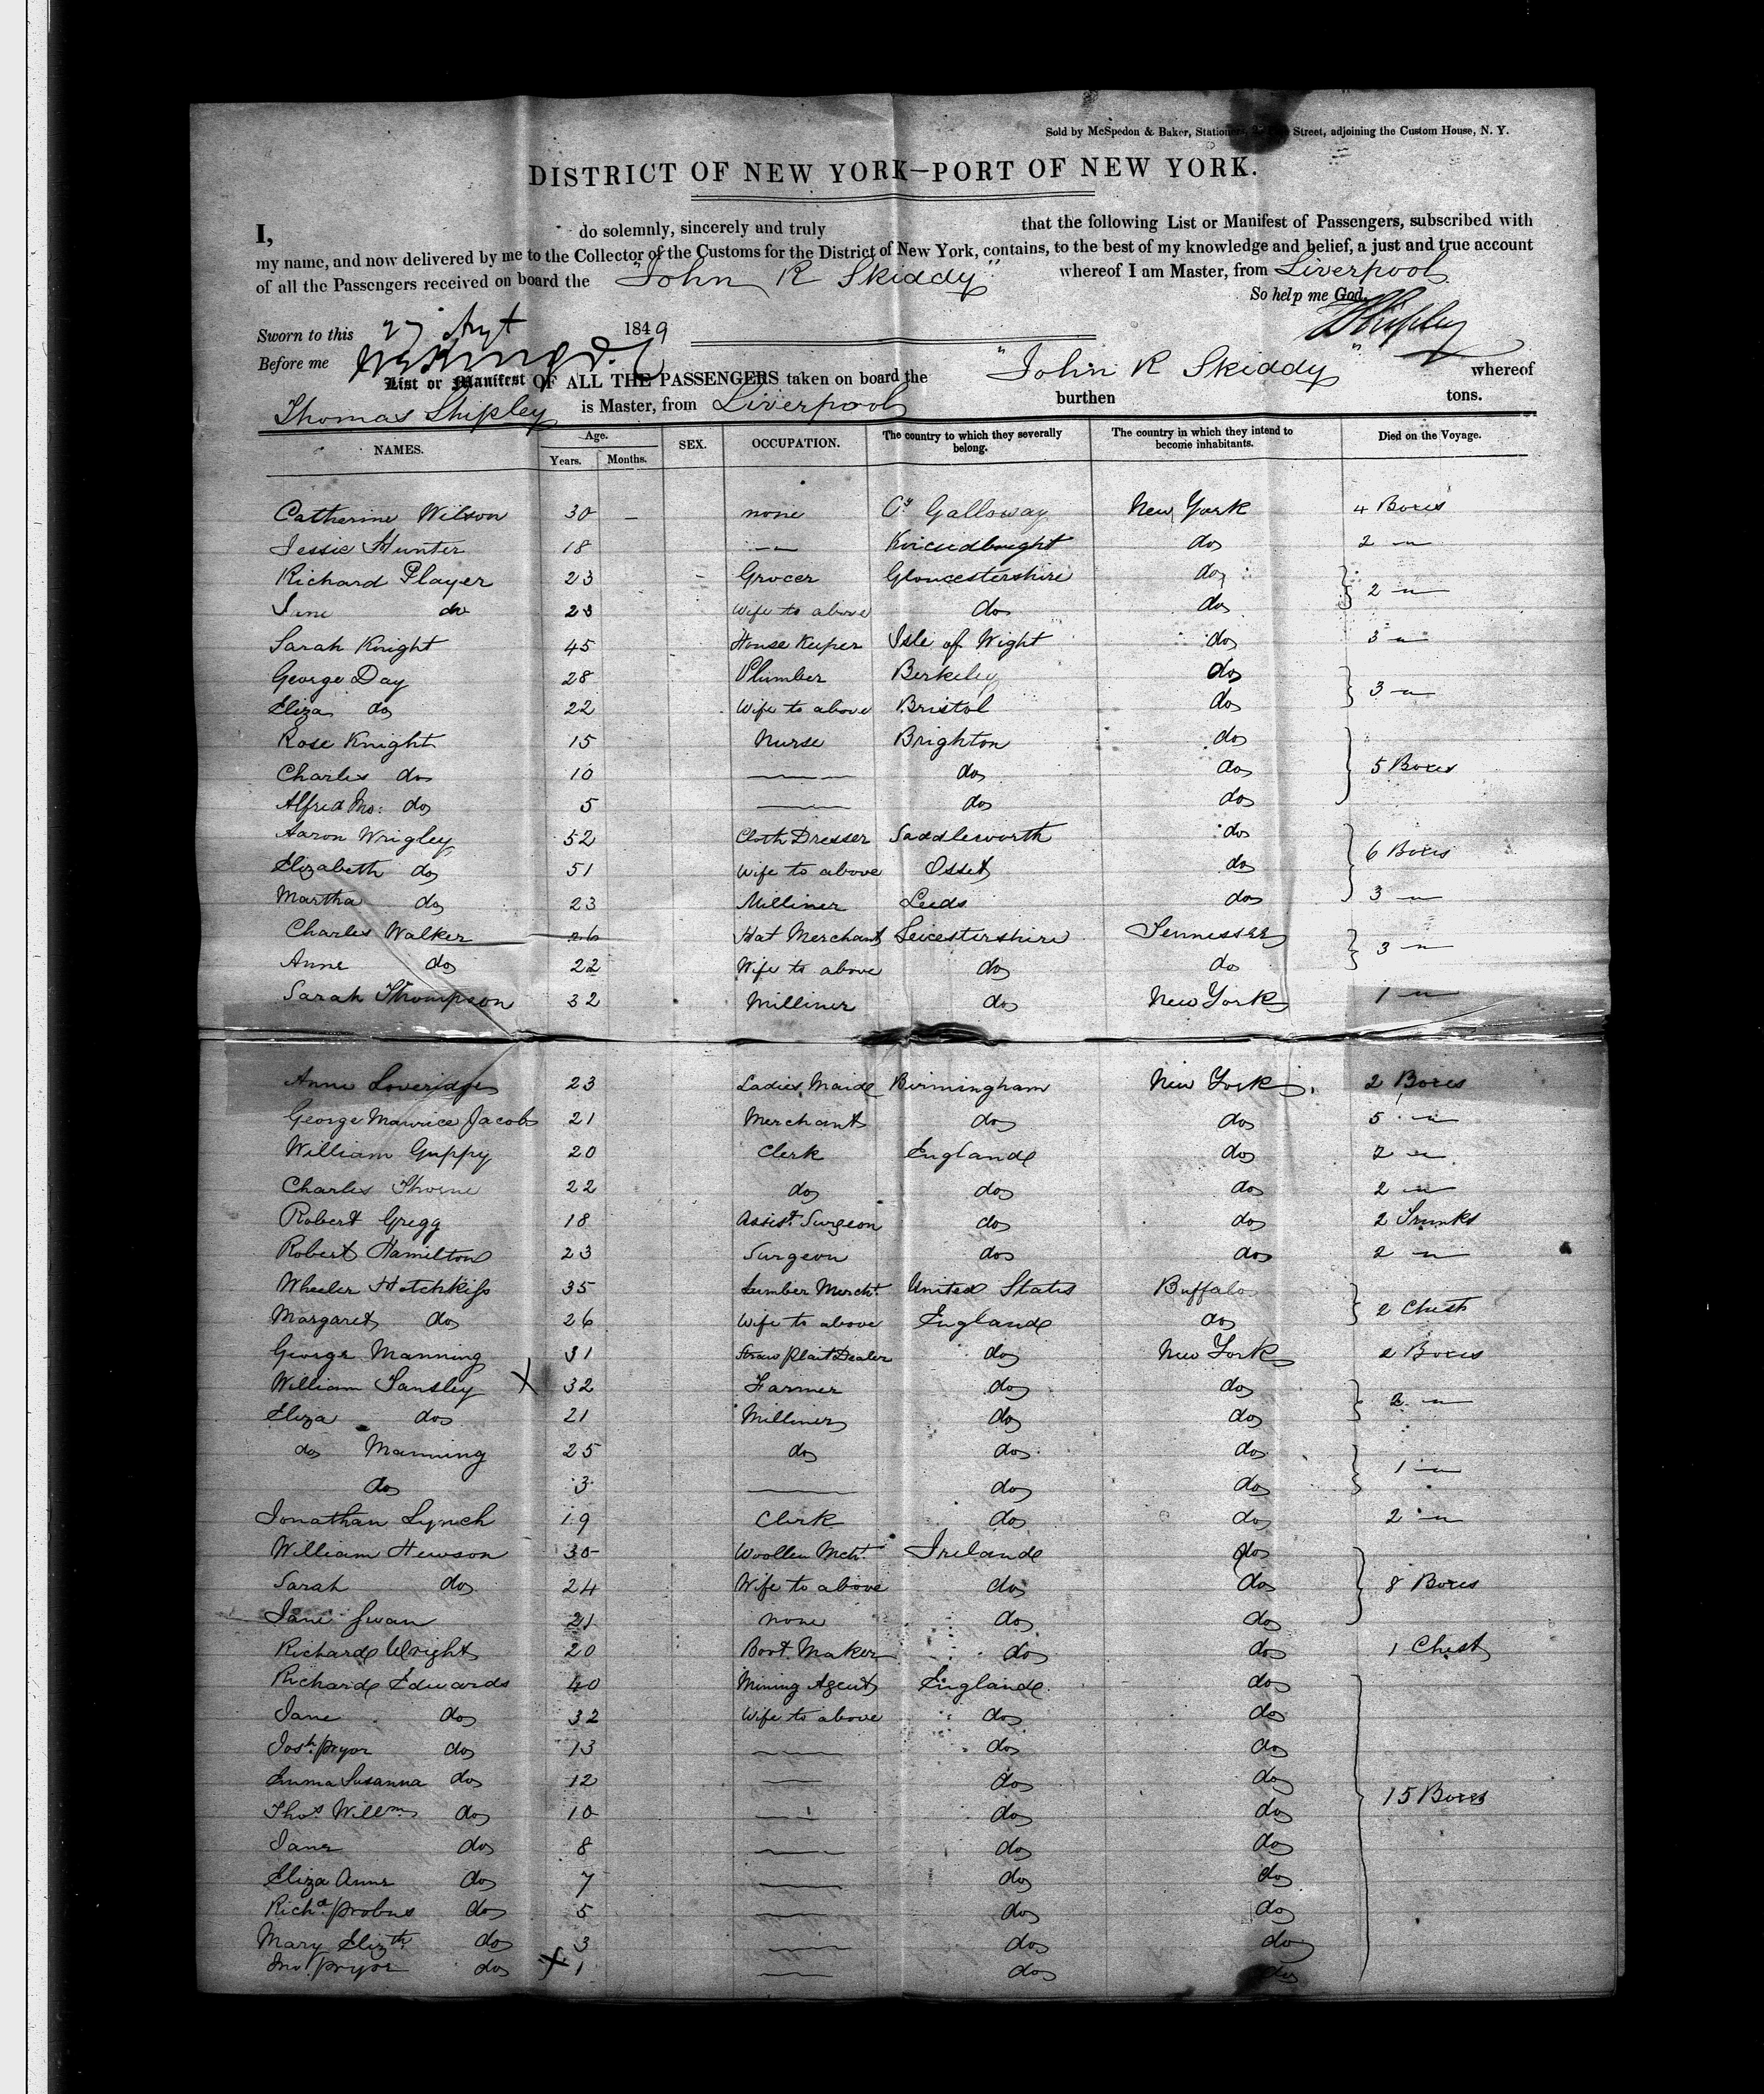 Sold by McSpedon & Baker, Stationers, Street, adjoining the Custom House, N. Y.
DISTRICT OF NEW YORK—PORT OF NEW YORK.
I, do solemnly, sincerely and truly that the following List or Manifest of Passengers, subscribed with
my name, and now delivered by me to the Collector of the Customs for the District of New York, contains, to the best of my knowledge and belief, a just and true account
of all the Passengers received on board the "John R Skiddy" whereof I am Master, from Liverpool
So help me God.
Sworn to this 27 1849 TShipley
Before me
List or Manifest OF ALL THE PASSENGERS taken on board the "John R Skiddy" whereof
Thomas Shipley is Master, from Liverpool burthen tons.
NAMES. Age. Years. Months. SEX. OCCUPATION. The country to which they severally belong. The country in which they intend to become inhabitants. Died on the Voyage.
Catherine Wilson 30 — none Cy Galloway New York 4 Boxes
Jessie Hunter 18 —"— do 2 —"—
Richard Player 23 Grocer Gloucestershire do
Jane do 23 Wife to above do do 2 —"—
Sarah Knight 45 House Keeper Isle of Wight do 3 —"—
George Day 28 Plumber Berkeley do
Eliza do 22 Wife to above Bristol do 3 —"—
Rose Knight 15 Nurse Brighton do
Charles do 10 —— do do 5 Boxes
Alfred Mo: do 5 —— do do
Aaron Wrigley 52 Cloth Dresser Saddleworth do
Elizabeth do 51 Wife to above Osset do 6 Boxes
Martha do 23 Milliner Leeds do 3 —"—
Charles Walker 26 Hat Merchant Leicestershire Tennessee
Anne do 22 Wife to above do do 3 —"—
Sarah Thompson 32 Milliner do New York 1 —"—
Anne Loveridge 23 Ladies Maid Birmingham New York 2 Boxes
George Maurice Jacobs 21 Merchant do do 5 —"—
William Guppy 20 Clerk England do 2 —"—
Charles Thorne 22 do do do 2 —"—
Robert Gregg 18 Assist. Surgeon do do 2 Trunks
Robert Hamilton 23 Surgeon do do 2 —"—
Wheeler Hotchkiss 35 Lumber Mercht. United States Buffalo
Margaret do 26 Wife to above England do 2 Chests
George Manning 31 Straw Plait Dealer do New York 2 Boxes
William Tansley X 32 Farmer do do
Eliza do 21 Milliner do do 2 —"—
do Manning 25 do do do
do 3 —— do do 1 —"—
Jonathan Lynch 19 Clerk do do 2 —"—
William Hewson 30 Woollen Mcht. Ireland do
Sarah do 24 Wife to above do do 8 Boxes
Jane Swan 21 none do do
Richard Wright 20 Boot Maker do do 1 Chest
Richard Edwards 40 Mining Agent England do
Jane do 32 Wife to above do do
Josh. Pryor do 13 —— do do
Emma Susanna do 12 —— do do
Thos Willm do 10 —— do do 15 Boxes
Jane do 8 —— do do
Eliza Anne do 7 —— do do
Richd. Probus do 5 —— do do
Mary Elizth do 3 —— do do
Jno. Pryor do X 1 —— do do